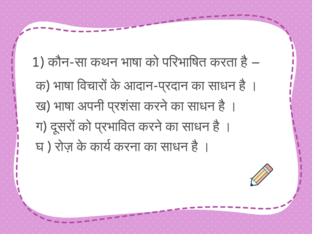 1) कौन-सा कथन भाषा को परिभाषित करता है –
क) भाषा विचारों के आदान-प्रदान का साधन है ।
ख) भाषा अपनी प्रशंसा करने का साधन है ।
ग) दूसरों को प्रभावित करने का साधन है ।
घ ) रोज़ के कार्य करना का साधन है ।